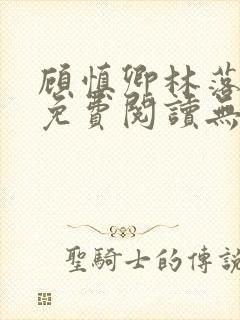 顾慎卿林落
免費閱讀無
聖騎士的傳說